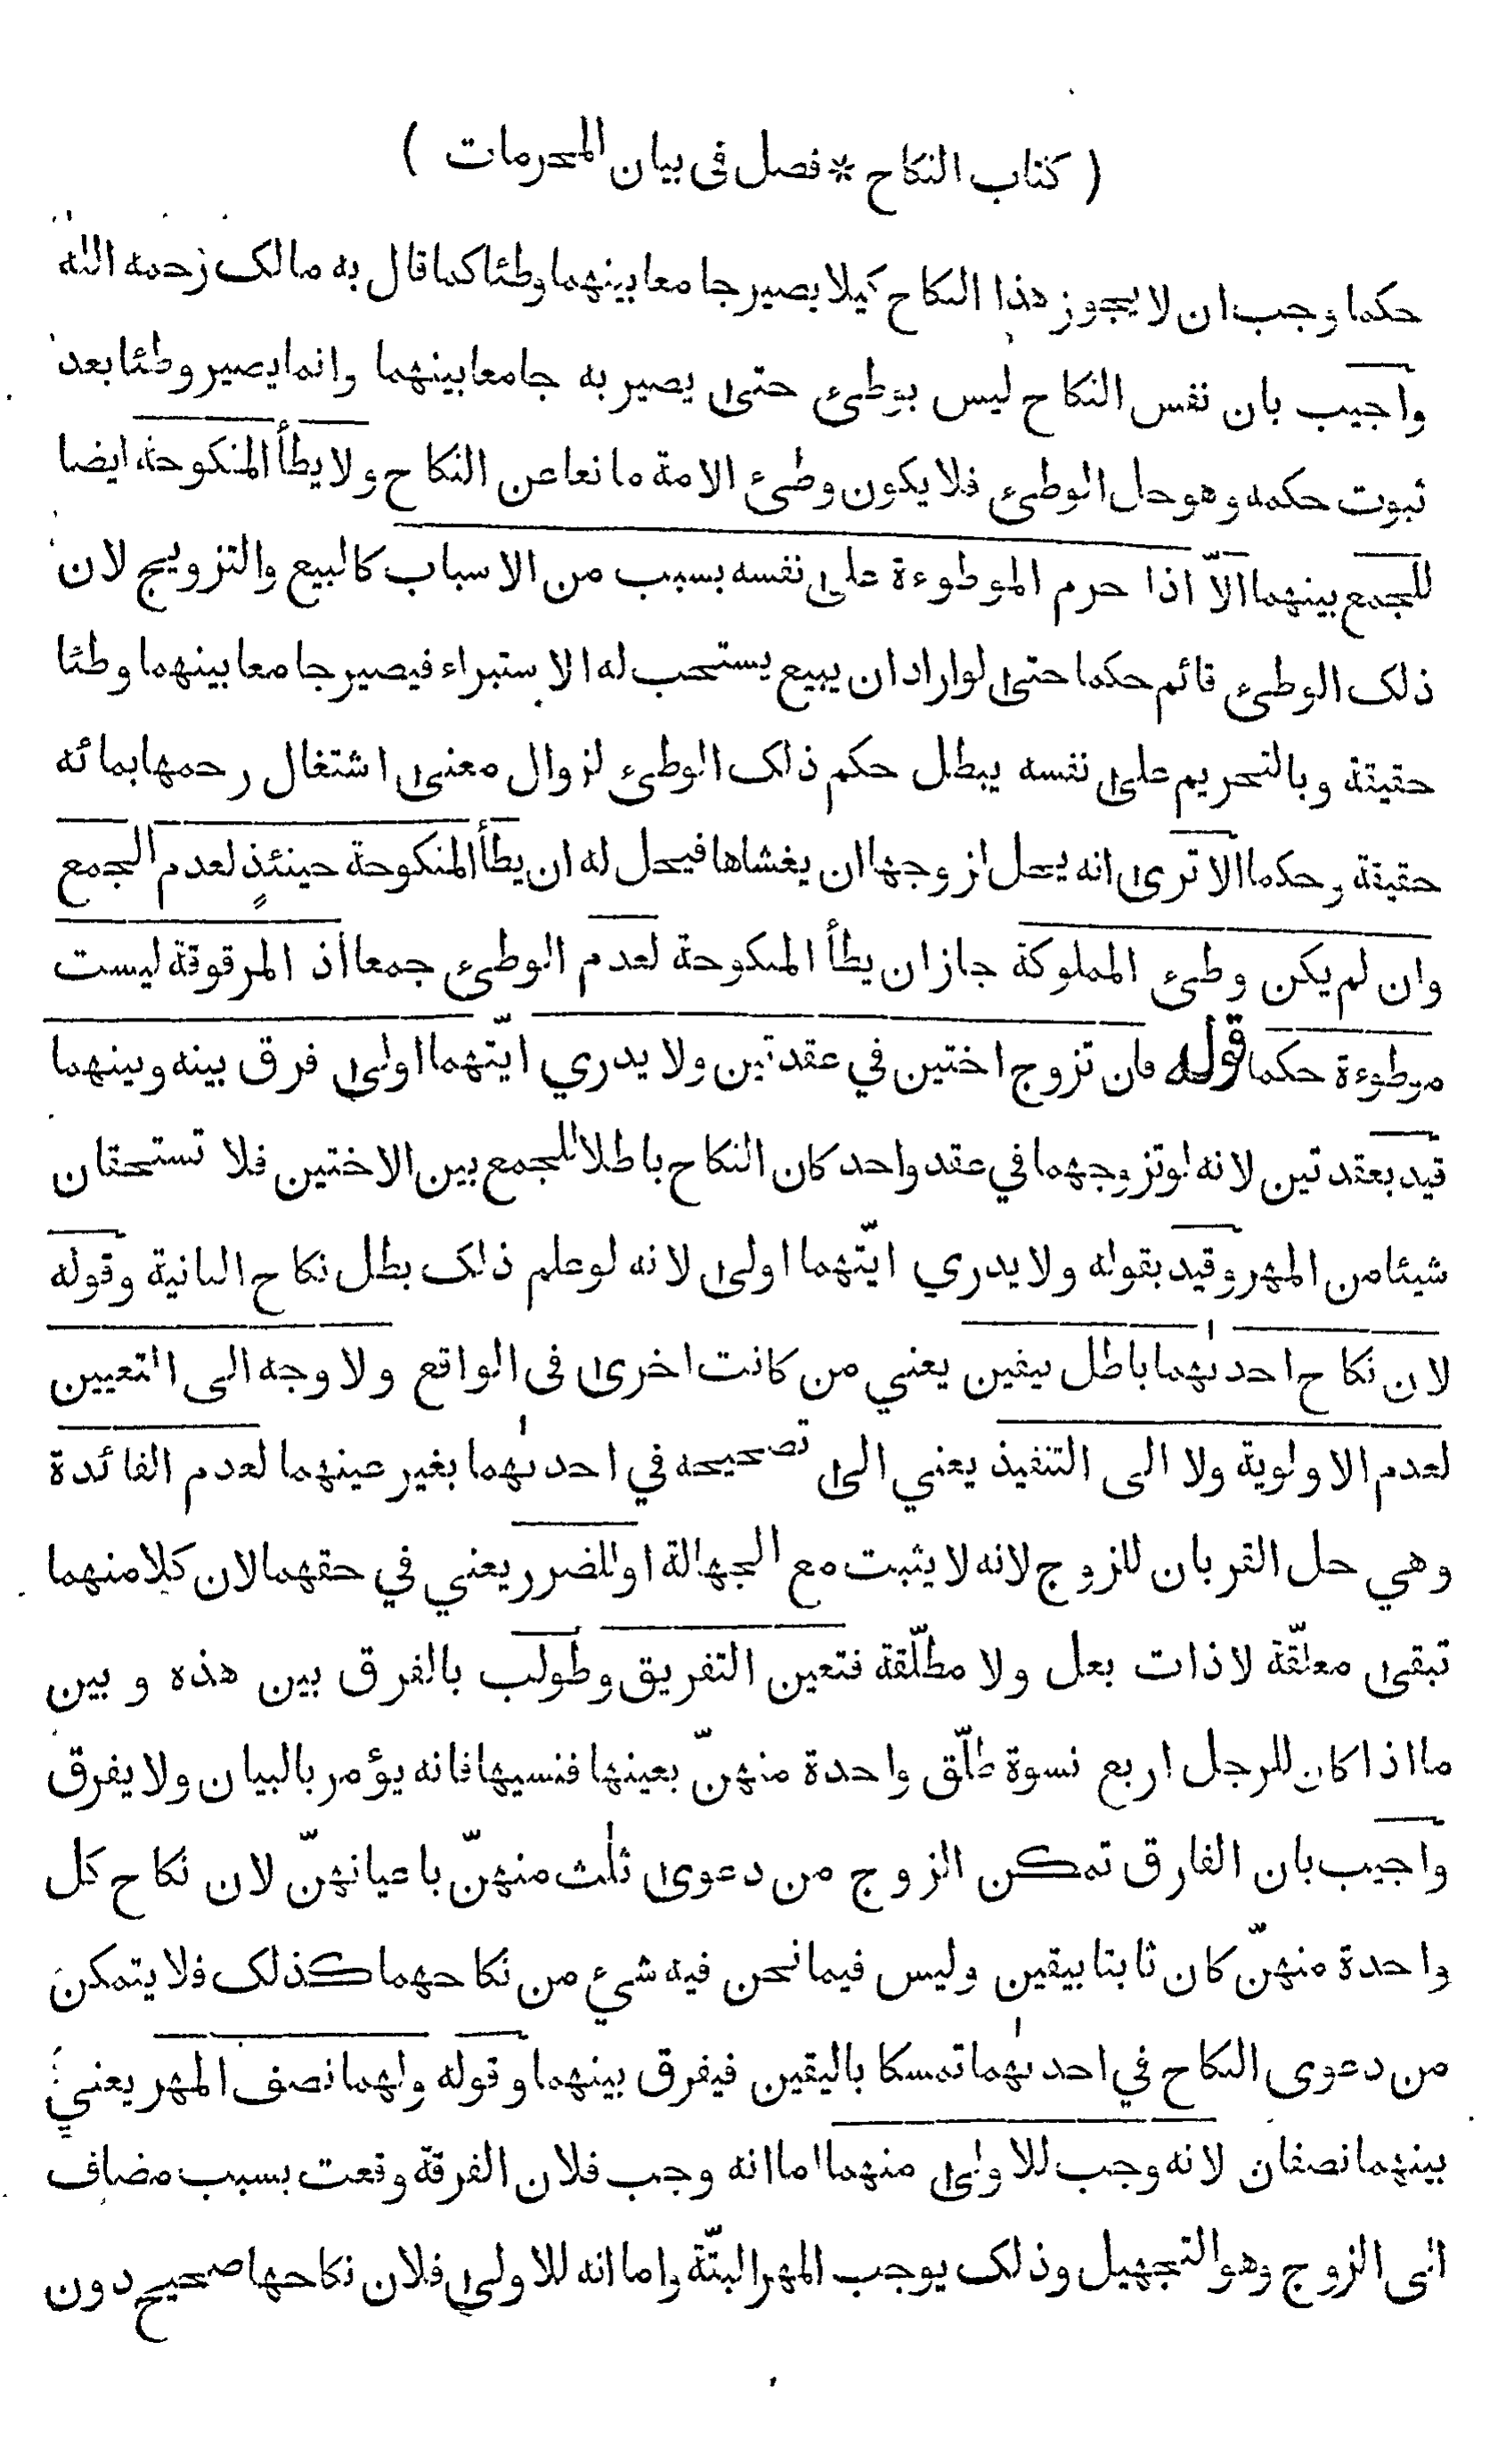 ( كتاب النكاح * فصل في بيان المحرمات )
حكما وجب ان لا يجوز هذا النكاح كيلا يصير جامعا بينهما وطئا كما قال به مالك رحمه الله
واجيب بان نفس النكاح ليس بوطئ حتى يصير به جامعا بينهما وانما يصير وطئا بعد
ثبوت حكمه وهو حل الوطئ فلا يكون وطئ الامة مانعا عن النكاح ولا يطأ المنكوحة ايضا
للجمع بينهما الّا اذا حرم الموطوءة على نفسه بسبب من الاسباب كالبيع والتزويج لان
ذلك الوطئ قائم حكما حتى لو اراد ان يبيع يستحب له الاستبراء فيصير جامعا بينهما وطئا
حقيقة وبالتحريم على نفسه يبطل حكم ذلك الوطئ لزوال معنى اشتغال رحمها بمائه
حقيقة وحكما الا ترى انه يحل لزوجها ان يغشاها فيحل له ان يطأ المنكوحة حينئذٍ لعدم الجمع
وان لم يكن وطئ المملوكة جاز ان يطأ المنكوحة لعدم الوطئ جمعا اذ المرقوقة ليست
موطوءة حكما قوله فان تزوج اختين في عقدتين ولا يدري ايّتهما اولى فرق بينه وبينهما
قيد بعقدتين لانه لو تزوجهما في عقد واحد كان النكاح باطلا للجمع بين الاختين فلا تستحقان
شيئا من المهر وقيد بقوله ولا يدري ايّتهما اولى لانه لو علم ذلك بطل نكاح الثانية وقوله
لان نكاح احدىٰهما باطل بيقين يعني من كانت اخرى في الواقع ولا وجه الى التعيين
لعدم الاولوية ولا الى التنفيذ يعني الى تصحيحه في احدىٰهما بغير عينهما لعدم الفائدة
وهي حل القربان للزوج لانه لا يثبت مع الجهالة او للضرر يعني في حقهما لان كلا منهما
تبقى معلّقة لا ذات بعل ولا مطلّقة فتعين التفريق وطولب بالفرق بين هذه و بين
ما اذا كان للرجل اربع نسوة طلّق واحدة منهنّ بعينها فنسيها فانه يؤمر بالبيان ولا يفرق
واجيب بان الفارق تمكن الزوج من دعوى ثلٰث منهنّ باعيانهنّ لان نكاح كل
واحدة منهنّ كان ثابتا بيقين وليس فيما نحن فيه شيء من نكاحهما كذلك فلا يتمكن
من دعوى النكاح في احدىٰهما تمسكا باليقين فيفرق بينهما وقوله ولهما نصف المهر يعني
بينهما نصفان لانه وجب للاولى منهما اما انه وجب فلان الفرقة وقعت بسبب مضاف
الى الزوج وهو التجهيل وذلك يوجب المهر البتّة واما انه للاولى فلان نكاحها صحيح دون